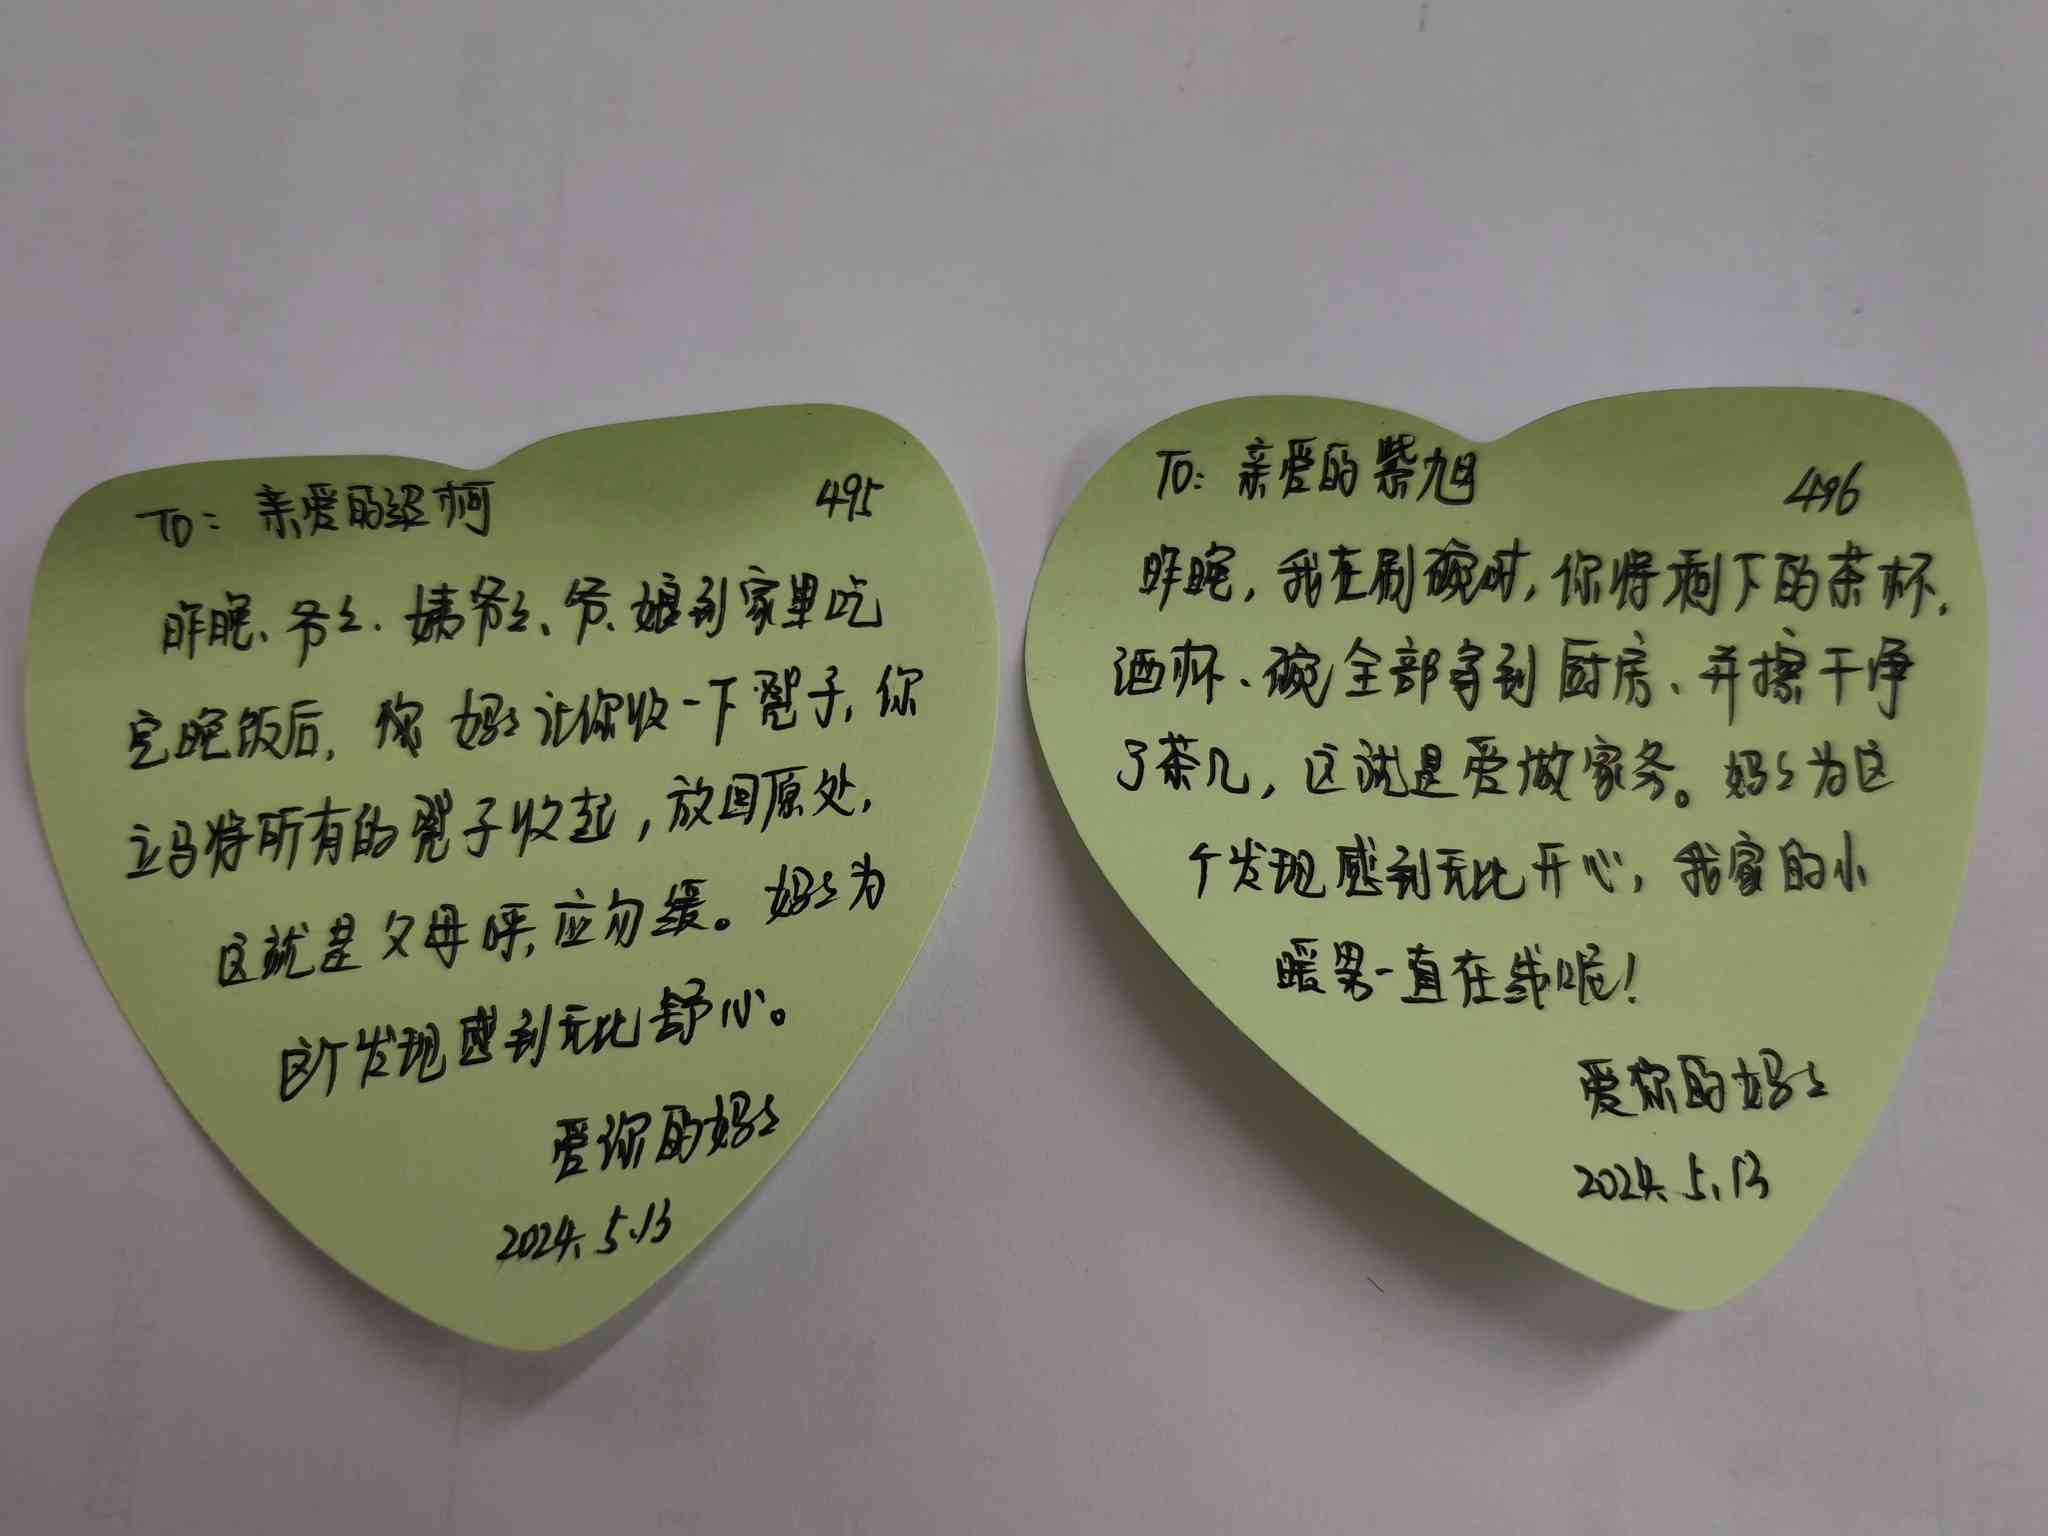 To: 亲爱的梁柯
495
昨晚、爷々、姨爷々、爷、娘到家里吃
完晚饭后, 妈々让你收一下凳子, 你
立马将所有的凳子收起, 放回原处,
这就是父母呼, 应勿缓。妈々为
这个发现感到无比舒心。
爱你的妈々
2024.5.13
To: 亲爱的紫旭
496
昨晚, 我在刷碗时, 你将剩下的茶杯、
酒杯、碗全部拿到厨房、并擦干净
了茶几, 这就是爱做家务。妈々为这
个发现感到无比开心, 我家的小
暖男一直在线呢!
爱你的妈々
2024.5.13